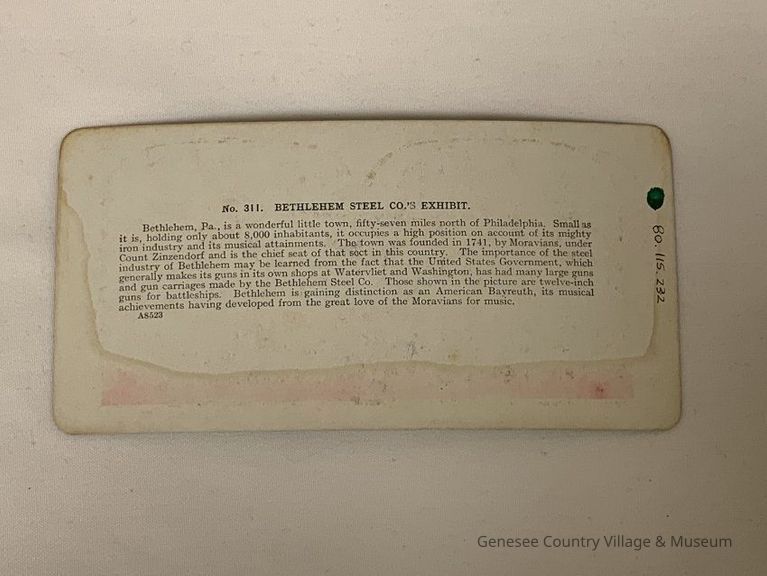 No. 311. BETHLEHEM STEEL CO.'S EXHIBIT.
Bethlehem, Pa., is a wonderful little town, fifty-seven miles north of Philadelphia. Small as
it is, holding only about 8,000 inhabitants, it occupies a high position on account of its mighty
iron industry and its musical attainments. The town was founded in 1741, by Moravians, under
Count Zinzendorf and is the chief seat of that sect in this country. The importance of the steel
industry of Bethlehem may be learned from the fact that the United States Government, which
generally makes its guns in its own shops at Watervliet and Washington, has had many large guns
and gun carriages made by the Bethlehem Steel Co. Those shown in the picture are twelve-inch
guns for battleships. Bethlehem is gaining distinction as an American Bayreuth, its musical
achievements having developed from the great love of the Moravians for music.
A8523
80.115.232
Genesee Country Village & Museum